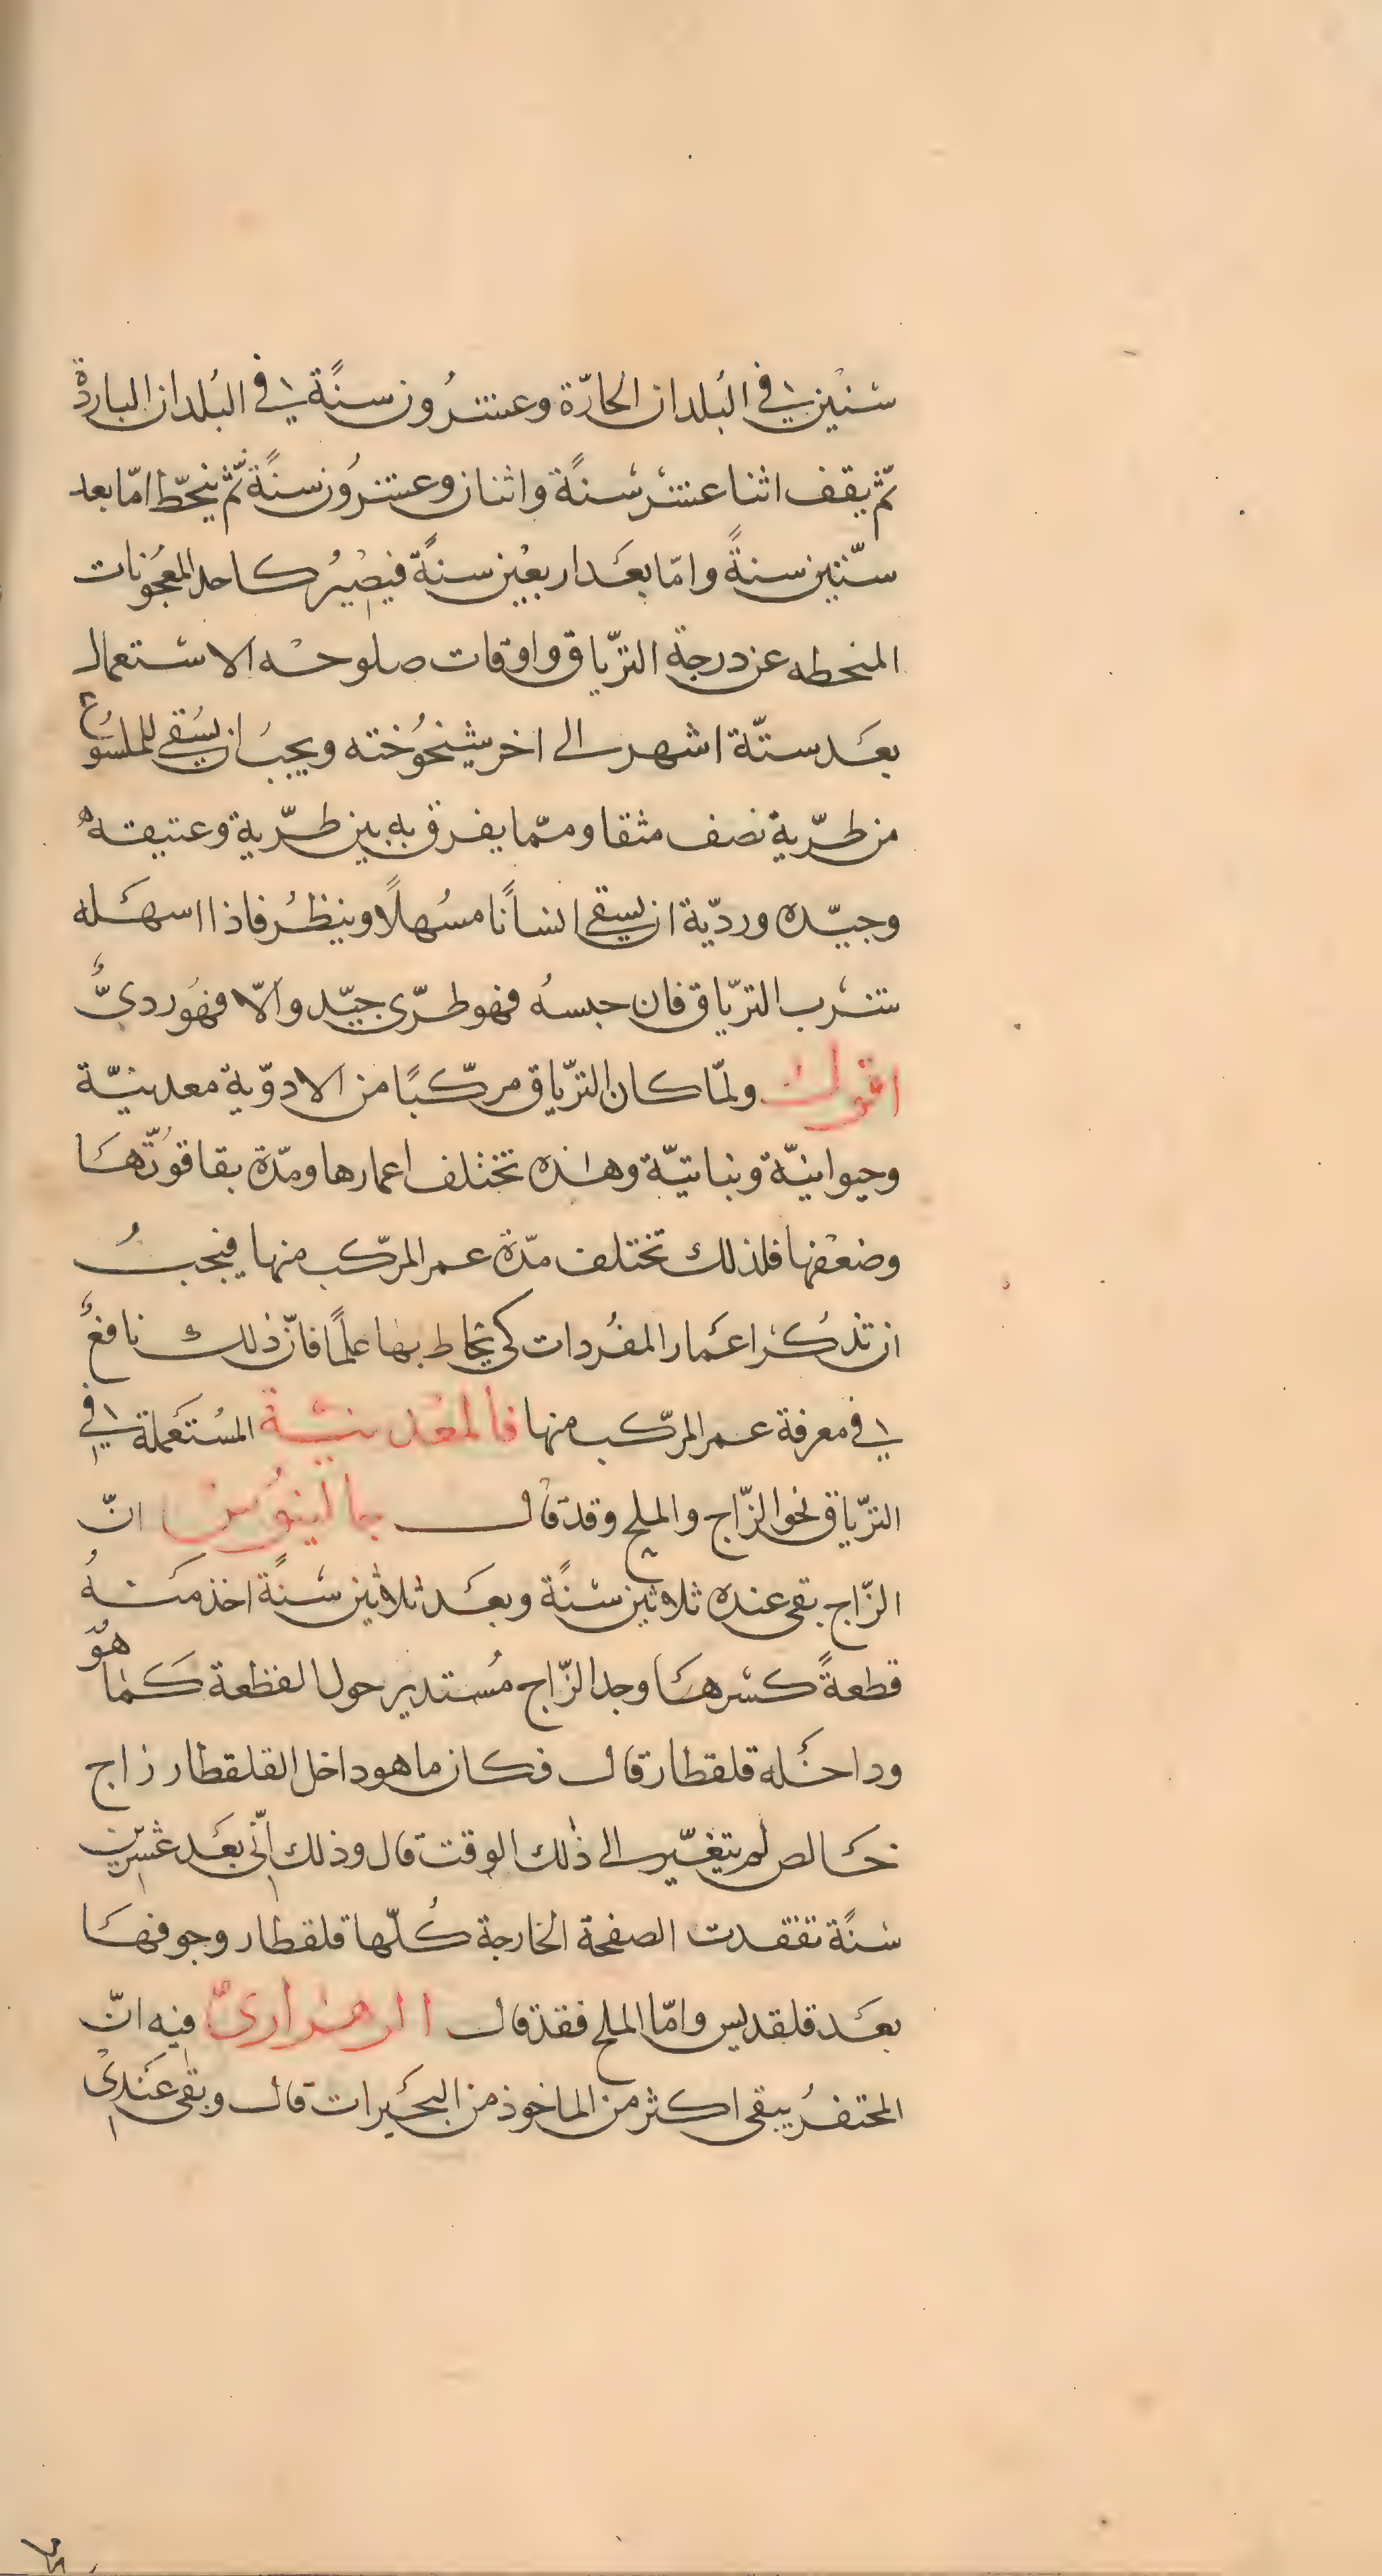 سنين في البُلدان الحارّة وعشرُون سنًة في البُلدان الباردة
ثمّ يقف اثنا عشر سنًة واثنان وعشرُون سنًة ثمّ ينحّط امّا بعد
ستّين سنةً وامّا بعَد اربعْين سنًة فيصْيرُ كاحد المعجُونات
المنحطه عن درجة الترّياق واوقات صلوحه الاستعمال
بعَد ستّة اشهر الى اخر شيخُوخته ويجبُ ان يسُقى للملسُوع
من طرّية نصف مثقا وممّا يفرق به بين طرّية وعتيقه
وجيّده وردّية ان يسقى انسانًا مسُهلًا وينظُر فاذا اسهَله
شرب الترّياق فان حبسهُ فهو طرّى جيّد والّا فهُو ردىٌّ
اقول ولمّا كان الترّياق مركّبًا من الادوّية معدنيّة
وحيوانيّة ونباتيّة وهذه تختلف اعمارها ومدّة بقا قوُتّهَا
وضعْفها فلذلك تختلف مدّة عمر المركّب منها فيجبُ
ان تذكُر اعَمار المفُردات كى يحُاط بها علمًا فانّ ذلك نافعٌ
في معرفة عمر المركّب منها فالمعْدنيّة المسُتَعملة في
الترّياق نحو الزّاج والملح وقد قال جالينوُس انّ
الزّاج بقى عنده ثلاثين سنًة وبعَد ثلاثين سنًة اخذ منَهُ
قطعةً كسرهَا وجد الزّاج مُستدير حول القطعة كَما هوّ
وداخَله قلقطار قال فكان ما هو داخل القلقطار زاج
خَالص لم يتغيّر الى ذلك الوقت قال وذلك انّى بعَد عشرين
سنًة تفقدت الصفحة الخارجة كُلّها قلقطار وجوفهَا
بعَد قلقديس وامّا الملح فقد قال الزهراوىّ فيه انّ
المحتفرُ يبقى اكثر من الماخوذ من البحَيرات قال وبقى عَندىْ